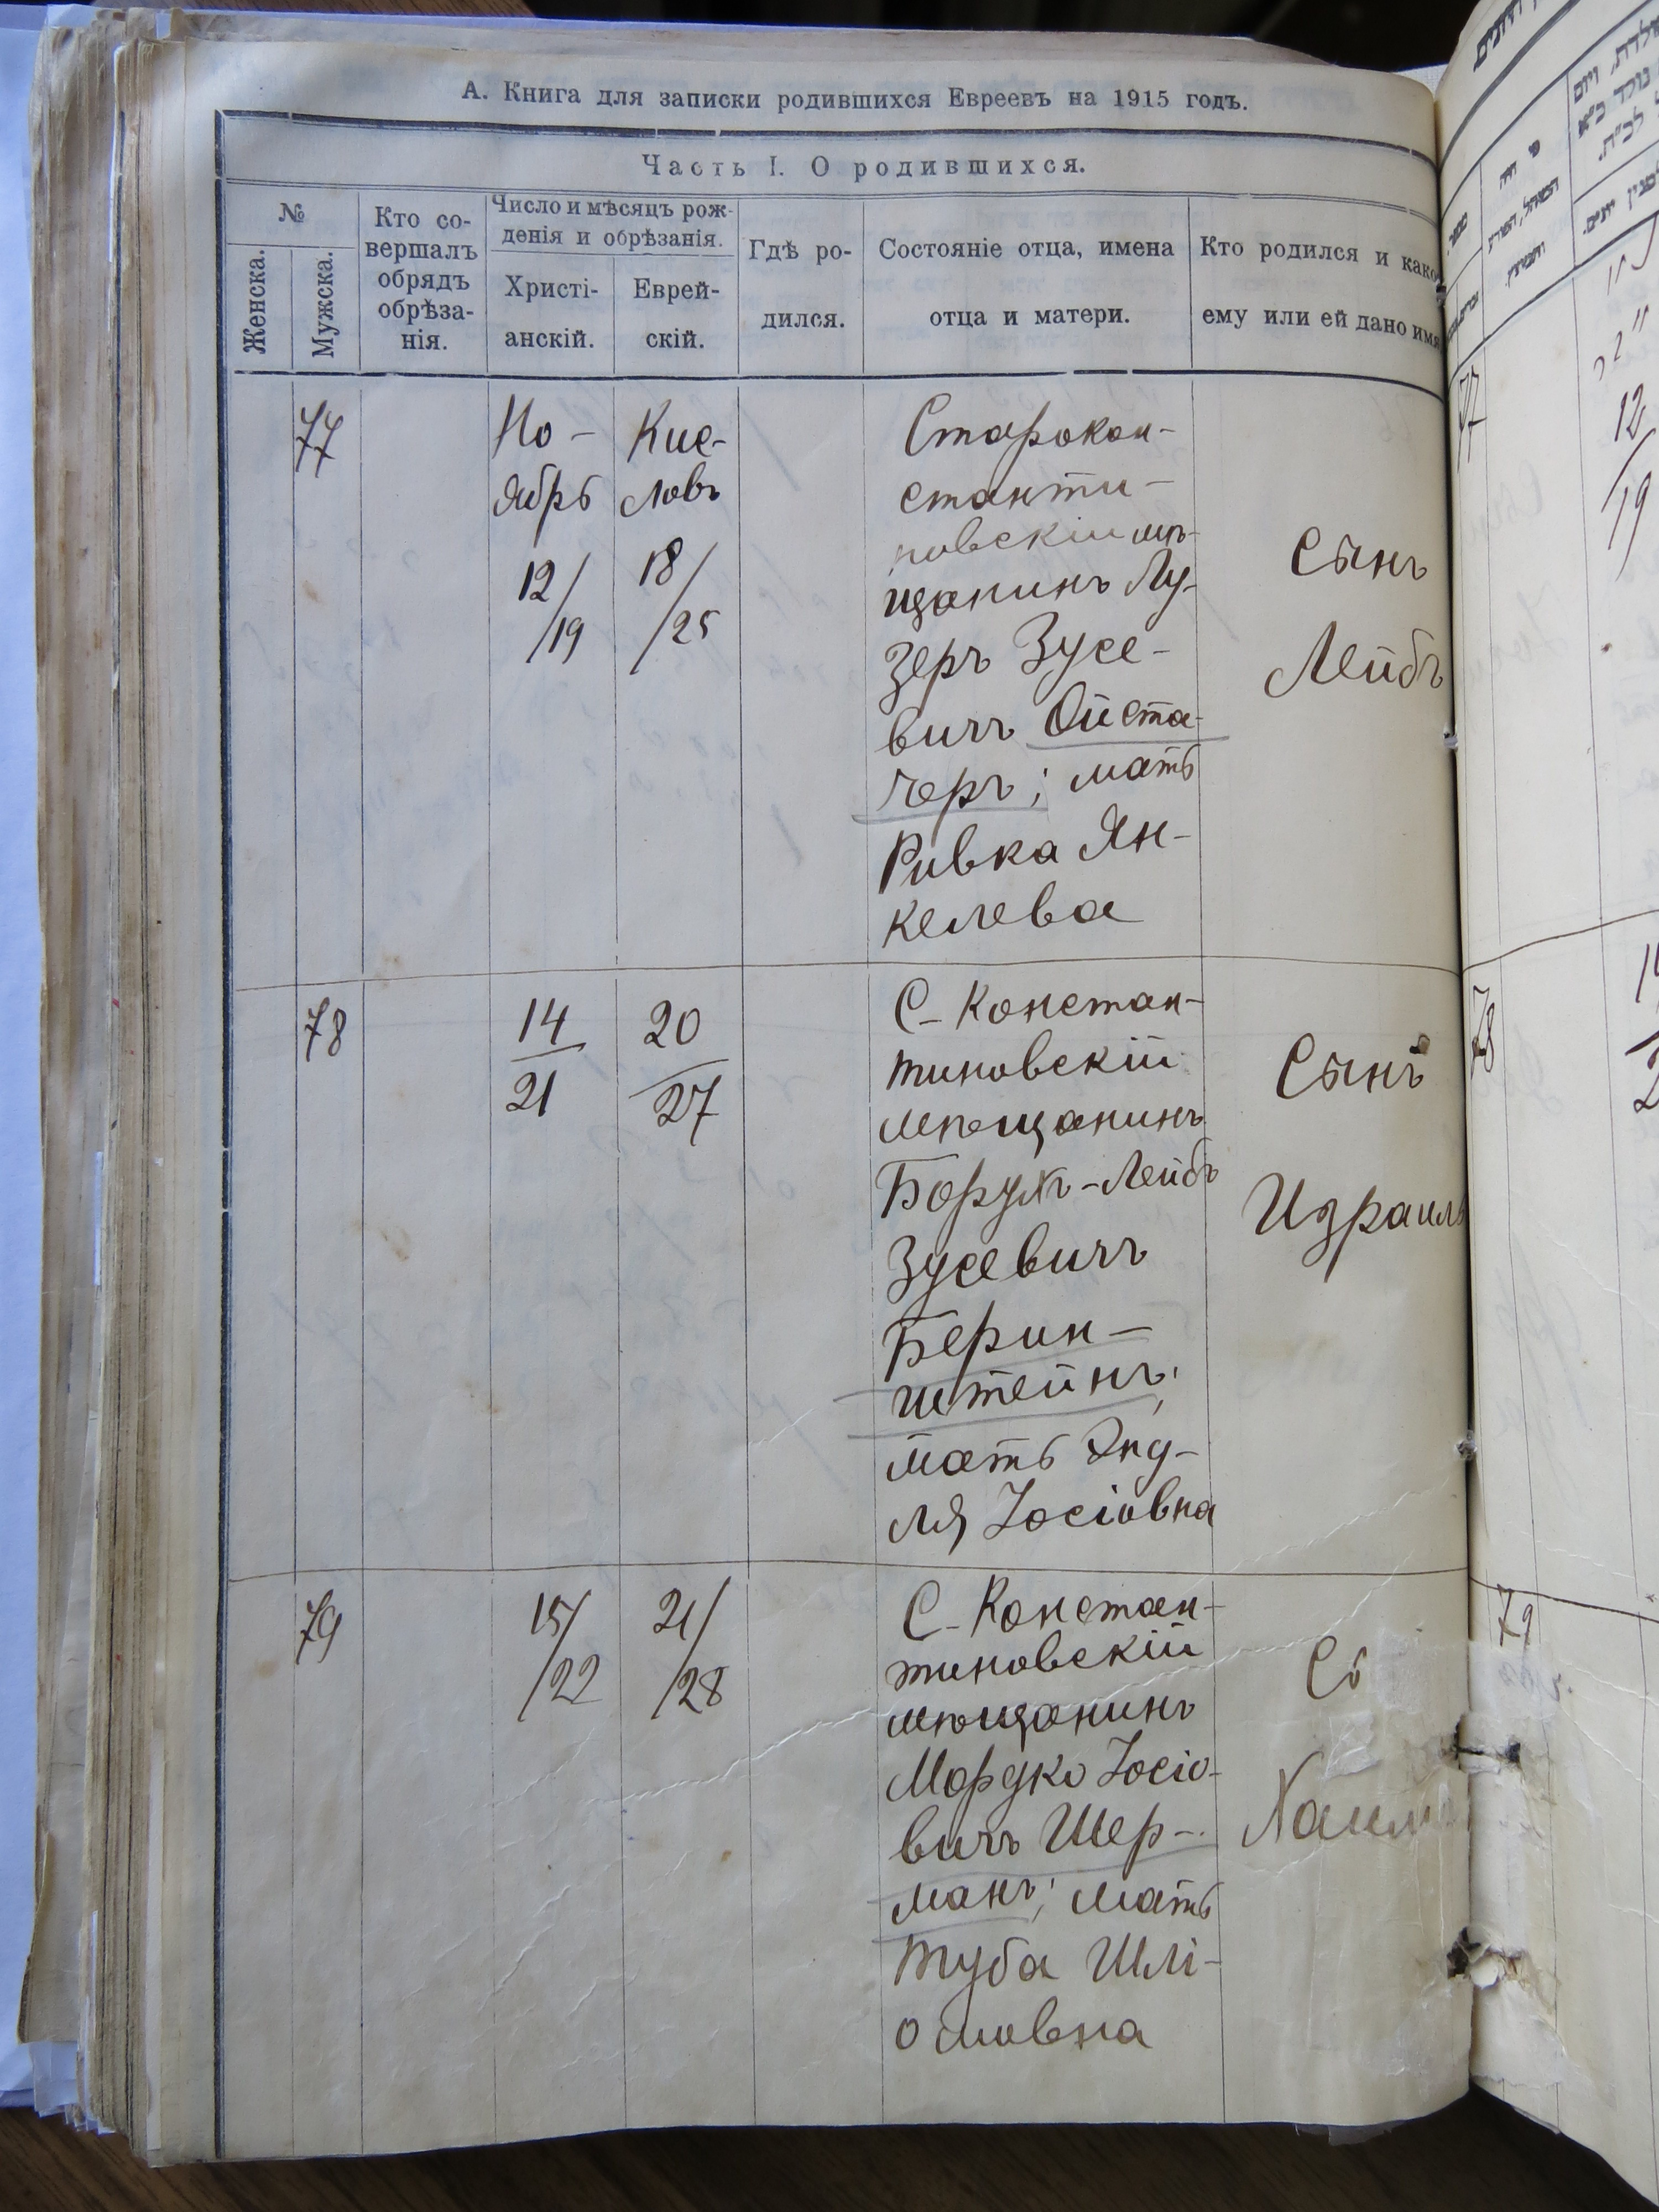 А. Книга для записки родившихся Евреевъ на 1915 годъ.
Часть I. О родившихся.
№
Женска.
Мужска.
Кто со-
вершалъ
обрядъ
обрѣза-
нія.
Число и мѣсяцъ рож-
денія и обрѣзанія.
Христі-
анскій.
Еврей-
скій.
Гдѣ ро-
дился.
Состояніе отца, имена
отца и матери.
Кто родился и како
ему или ей дано имя
77
Но-
ябрь
12/
/19
Кис-
ловъ
18/
/25
Старокон-
станти-
новскій мѣ-
щанинъ Лу-
зеръ Зусе-
вичъ Ойста-
черъ; мать
Ривка Ян-
келева
Сынъ
Лейбъ
78
14
21
20
27
С-Констан-
тиновскій
мѣщанинъ
Борухъ-Лейбъ
Зусевичъ
Берин-
штейнъ;
мать Энд-
ля Іосіовна
Сынъ
Израиль
79
15/
/22
21/
/28
С-Констан-
тиновскій
мѣщанинъ
Мордко Іосіо-
вичъ Шер-
манъ; мать
Туба Шлі-
омовна
Хаимъ
77
12
19
78
79